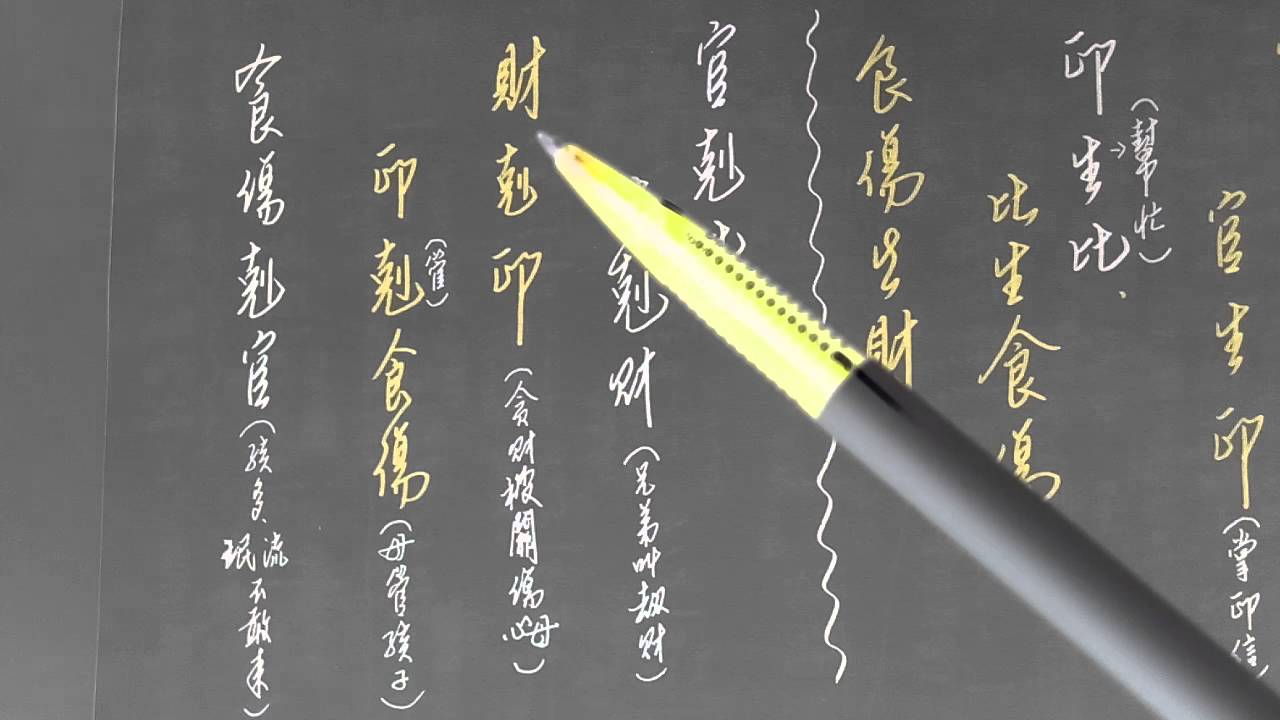 官生印(掌印信
印生比
(→幫忙)
比生食傷
食傷生財
官剋
剋財(兄弟叫劫財)
財剋印(貪財被關傷心母)
印剋食傷(母管孩子)
(管)
食傷剋官(孩多、流珉不敢來)